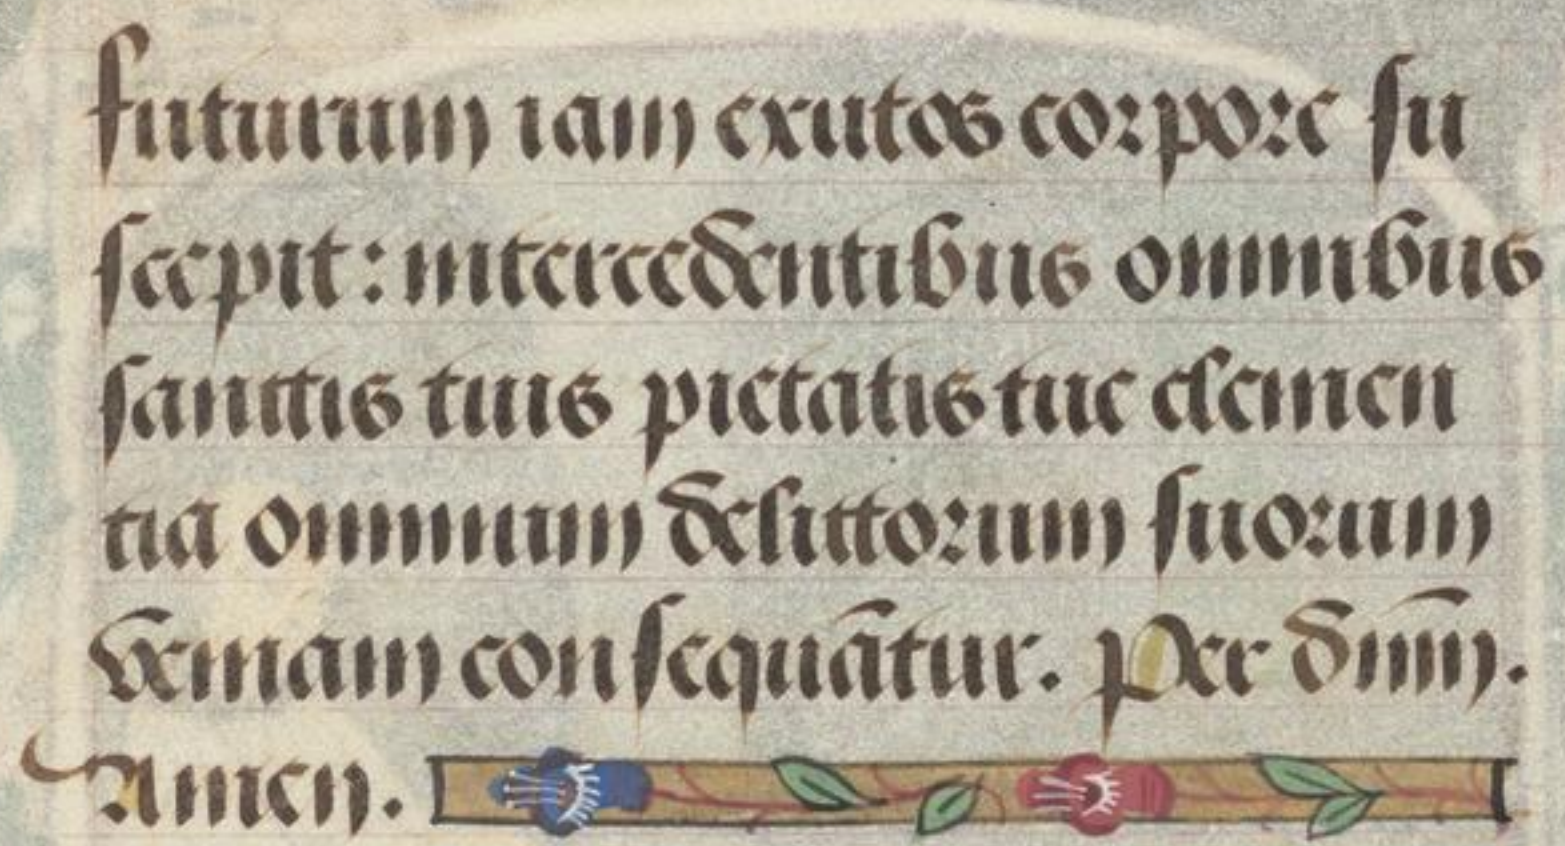 futurum iam exutos corpore su
scepit: intercedentibus omnibus
sanctis tuis pietatis tue clemen
tia omnium delictorum suorum
veniam consequātur. Per dnm̄.
Amen.